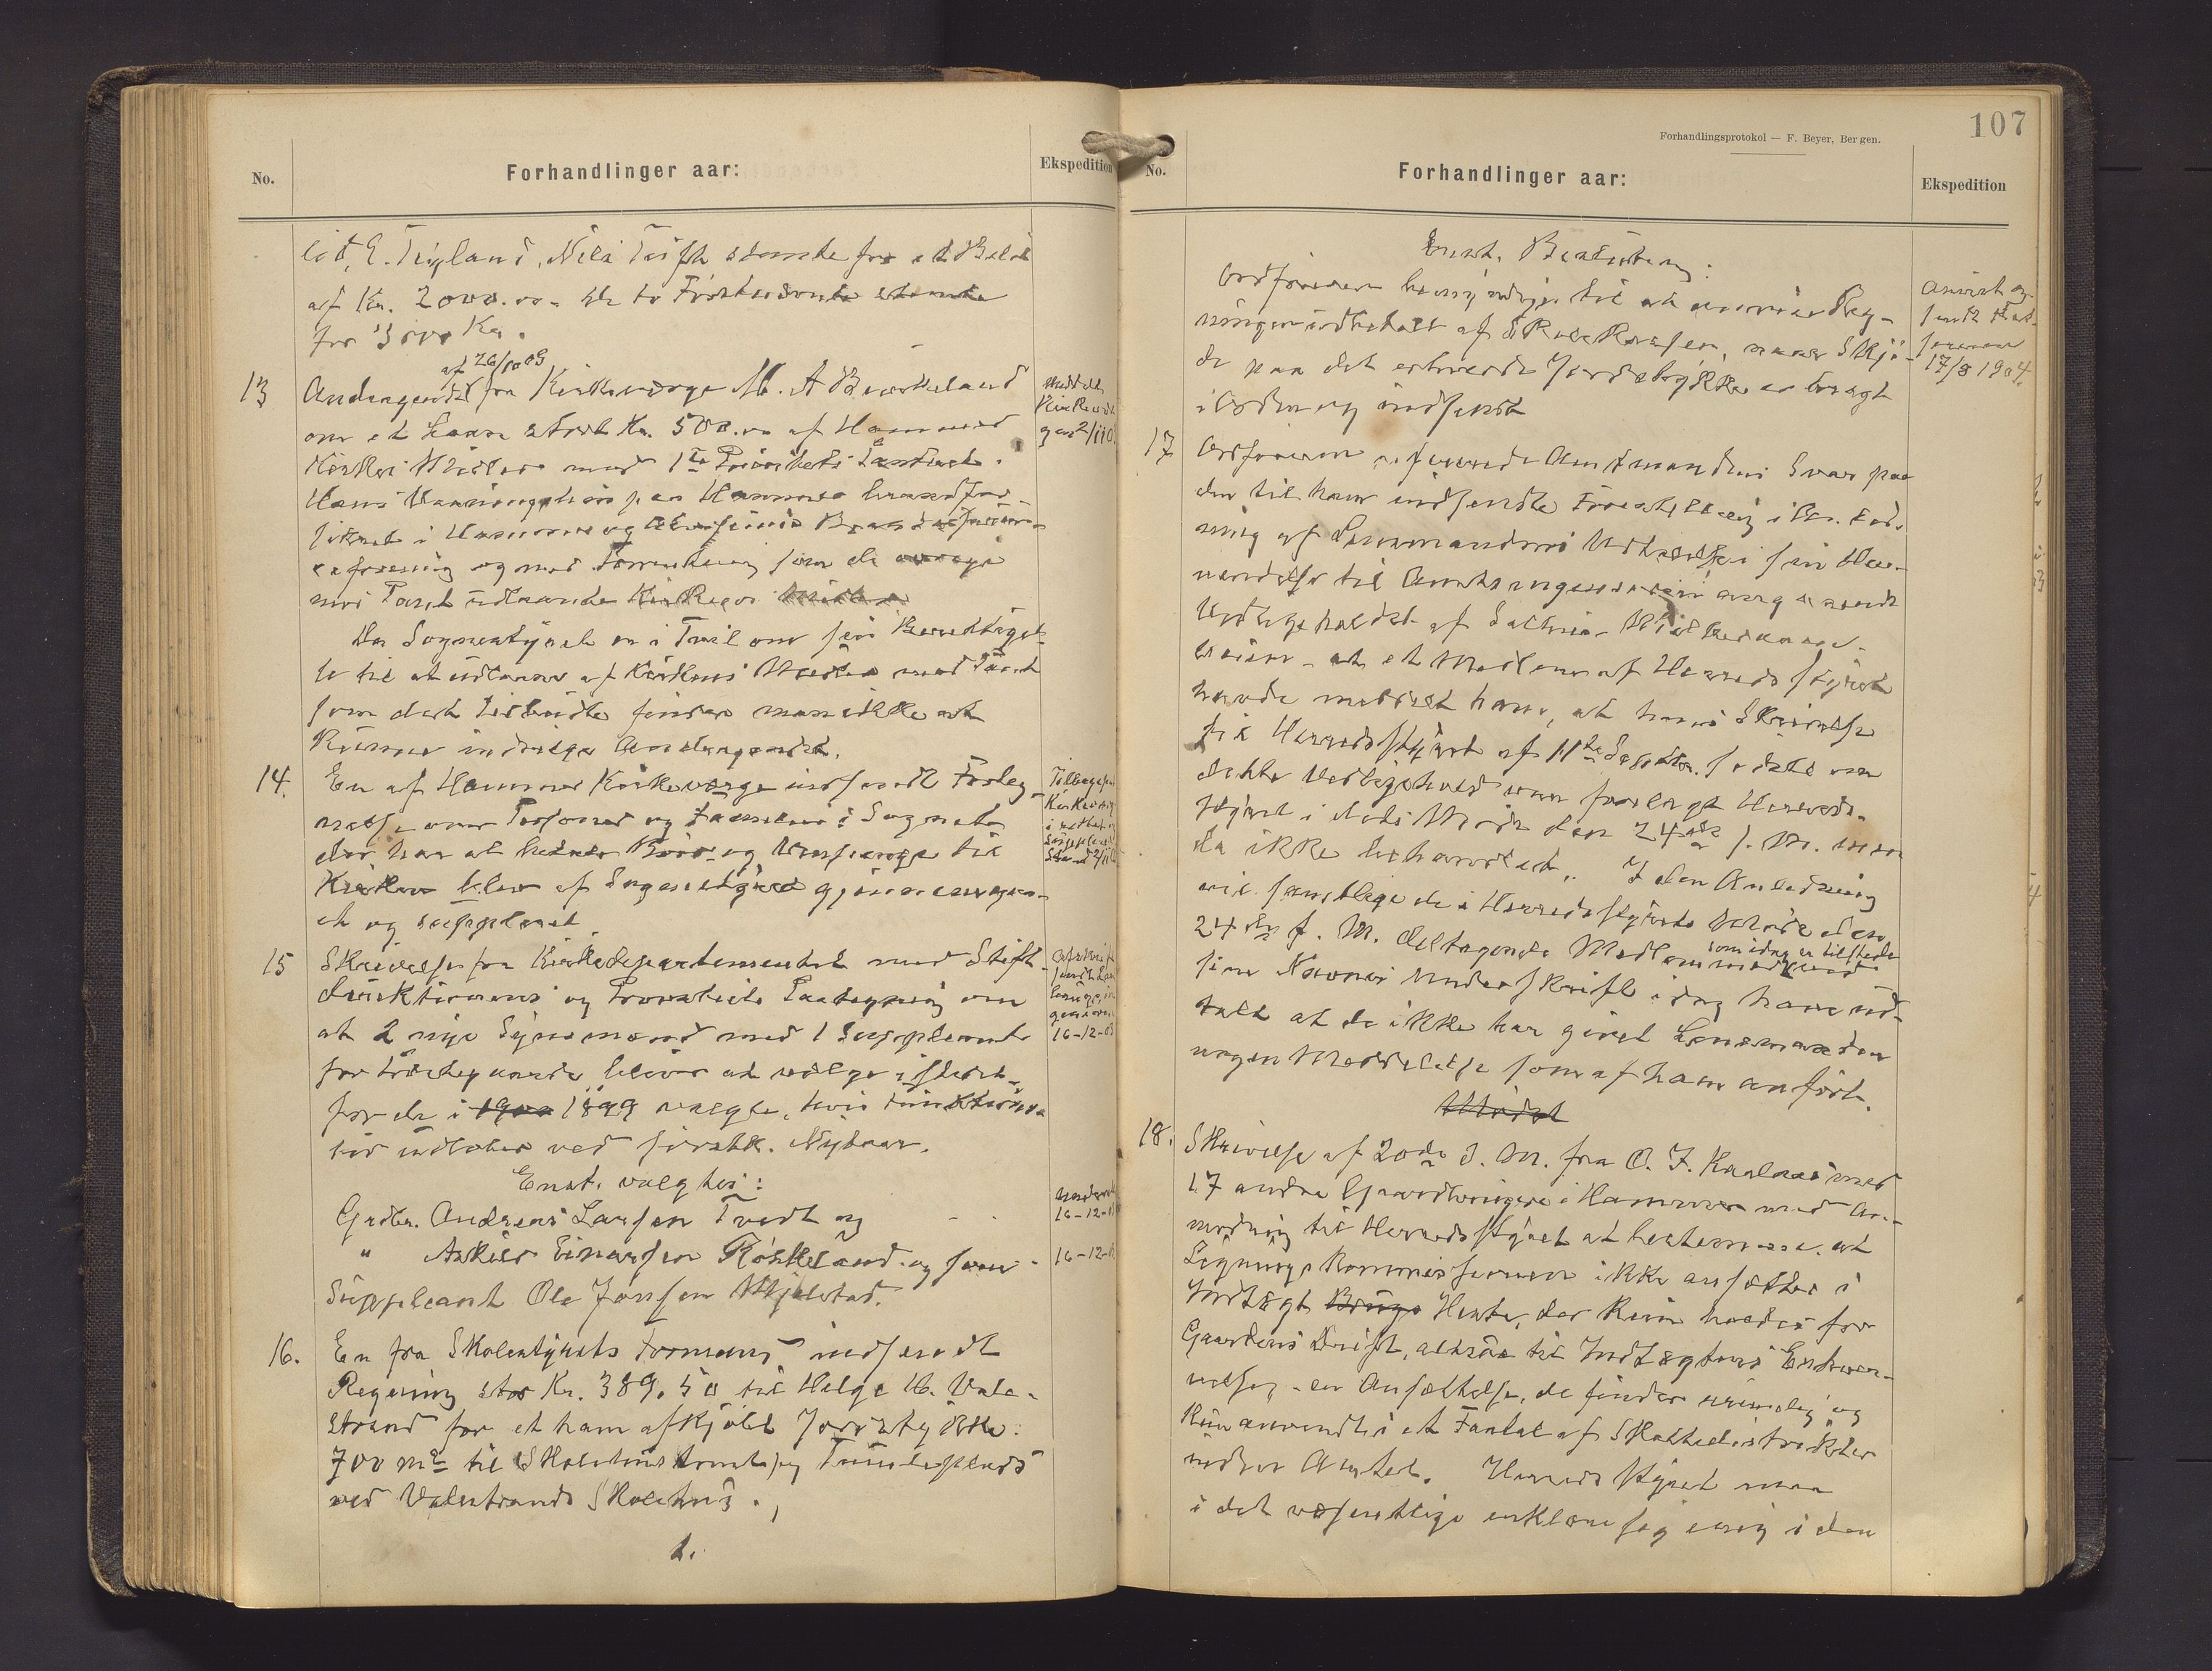 No.
Forhandlinger aar:
Ekspedition
E. Teigland, Nils Toft stemte for et Beløb
af Kr. 2000.00 - de to Førstnævnte stemte
for 3000 Kr.
af 26/10 03
13 Andragende fra Kirkeværge M. A. Birkeland
om et Laan stort Kr. 500.00 af Hammers
Kirkes Midler med 1ste Prioritets Panteret.
Hans Vaaningshus paa Hammer brandfor-
sikret i Hammer og Brandforsikr-
forening og mod Forrentning som de
mod Pant udlaante Kirkens Midler
Da Sognestyret er i Tvil om sin Berettigel-
se til at udlaane af Kirkens Midler mod Pant
som det tilbudte finder man ikke at
kunne indvilge Andragendet.
Meddelt
Kirkevær-
gen 2/11 0
14. En af Hammer Kirkeværge indsendt Forteg-
nelse over Personer og Familier i Sognet
der har at betale til
Kirken blev af Sognestyret gjennemgaa-
et og suppleret.
Tilbagesen
Kirkeværge
15 Skrivelse fra Kirkedepartementet med Stift-
direktionens og Provstiets Paategning om
at 2 nye Synsmænd med 1 Suppleant
for bliver at vælge istedet-
for de i 1900 1899 valgte, hvis Funktions-
tid udløber ved førstk. Nytaar.
Afskrift
sendt
16-12-03
Enst. valgtes:
Grdbr. Andreas Larsen Tvedt og
" Askild Einarsen Røskeland og som
Suppleant Ole Jansen Mjelstad.
16-12-0
16-12-0
16. En fra Skolestyrets Formand indsendt
Regning stor Kr. 389.50 til Helge M. Vale-
strand for et ham afkjøbt Jordstykke:
700 m² til Skolehustomt og Tumleplads
ved Valestrands Skolehus.
1.
107
Forhandlingsprotokol — F. Beyer, Bergen.
No.
Forhandlinger aar:
Ekspedition
Enst. Beslutning:
Ordføreren bemyndiges til at anvise Reg-
ningen udbetalt af Skolekassen, naar Skjø-
de paa det erhvervede Jordstykke er bragt
i Orden og indsendt
Anvist og
sendt
17/8 1904.
17 Ordføreren refererede Amtmandens Svar paa
den til ham indsendte Forestilling i An-
ning af Lensmandens Udtalelse i sin Hen-
vendelse til Amtsingeniøren angaaende
Vedligeholdet af
veien - at et Medlem af Herredsstyret
havde meddelt ham, at hans Skrivelse
til Herredsstyret af 11te Septbr. sidstl. om
dette Vedligehold var forelagt Herreds-
styret i dets Møde den 24de s. M. men
da ikke behandlet. I den Anledning
vil samtlige de i Herredsstyrets Møde den
24de f. M. deltagende Medlemmer
som idag er tilstede
sine Navnes Underskrift idag have ud-
talt at de ikke har givet Lensmanden
nogen Meddelelse som af ham anført.
Mødet
18. Skrivelse af 20de d. M. fra O. J. Kaalaas med
17 andre Gaardbrugere i Hammer med An-
modning til Herredsstyret at bestemme at
Ligningskommissionen ikke ansætter i
Indtægt Brugs Heste, der kun holdes for
Gaardens Drift, altsaa til Indtægtens Erhver-
velse, - en Ansættelse, de finder urimelig og
kun anvendes i et Faatal af Skattedistrikter
indom Amtet. Herredsstyret maa
i det væsentlige erklære sig enig i den